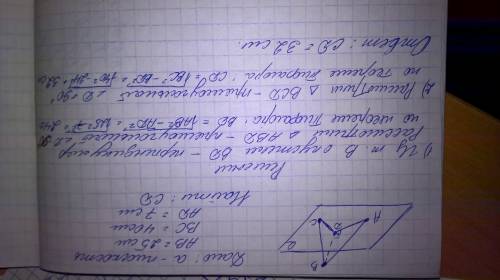 Дано: α - плоскость
AB = 25 см
BC = 40 см
AD = 7 см
Найти: CD
Решение
1) Из т. B опустим BD - перпендикуляр
Рассмотрим Δ ABD - прямоугольный
по теореме Пифагора: BD = √AB² - AD² =
2) Рассмотрим Δ BCD - прямоугольный ∠D = 90°
по теореме Пифагора: CD = √BC² - BD² =
Ответ: CD = 32 см.
A
B
C
D
α